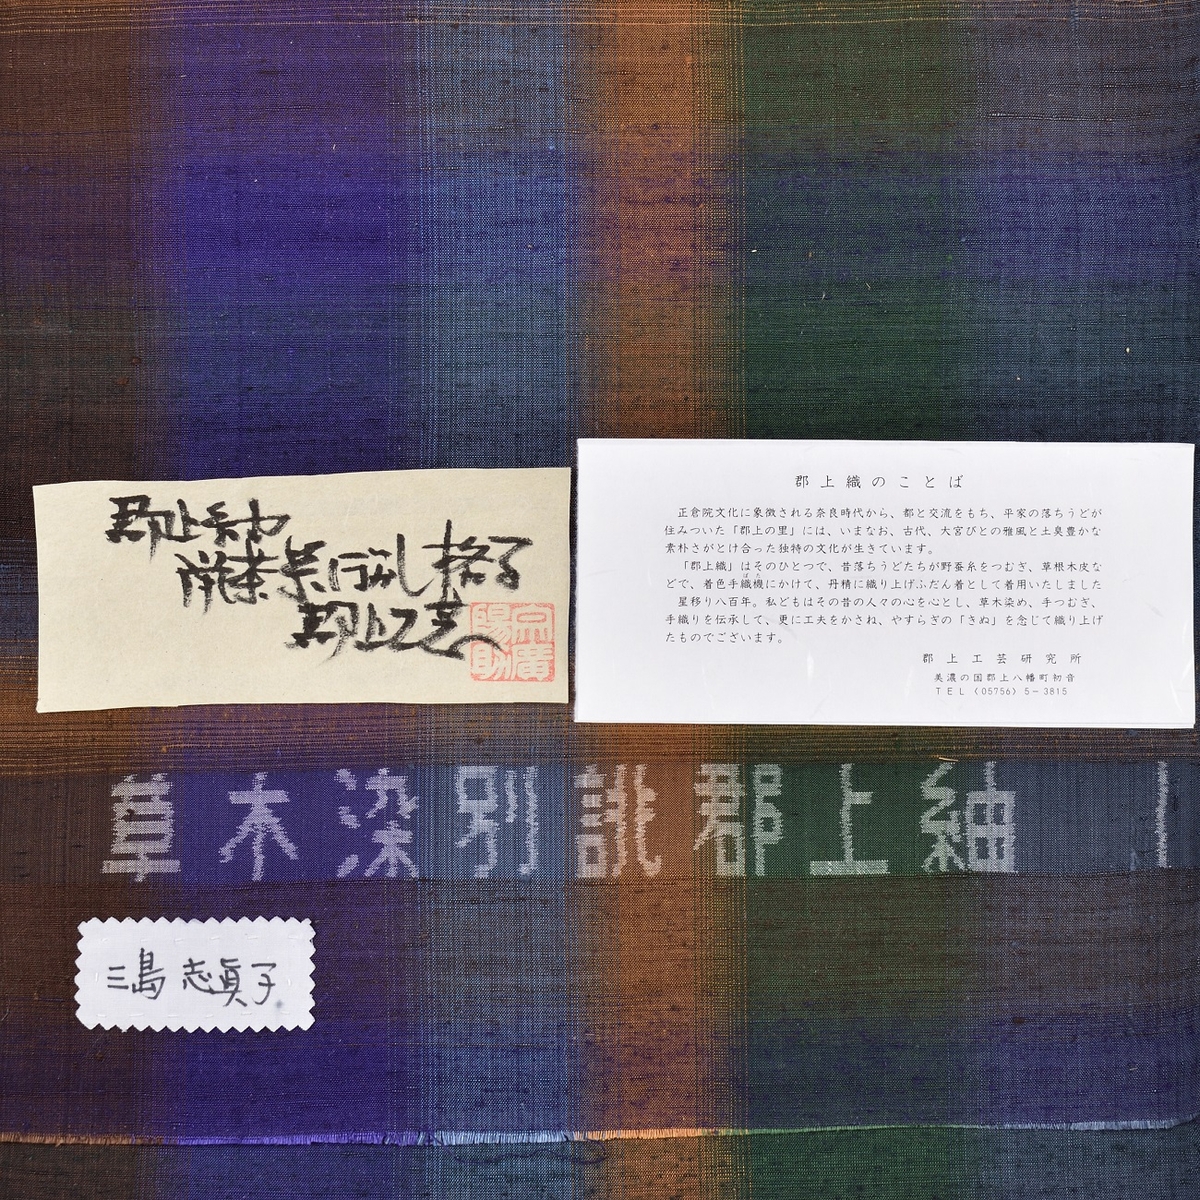 郡上紬
郡上工芸
郡上織のことば
正倉院文化に象徴される奈良時代から、都と交流をもち、平家の落ちうどが
住みついた「郡上の里」には、いまなお、古代、大宮びとの雅風と土臭豊かな
素朴さがとけ合った独特の文化が生きています。
「郡上織」はそのひとつで、昔落ちうどたちが野蚕糸をつむぎ、草根木皮な
どで、着色手織機にかけて、丹精に織り上げふだん着として着用いたしました
星移り八百年。私どもはその昔の人々の心を心とし、草木染め、手つむぎ、
手織りを伝承して、更に工夫をかさね、やすらぎの「きぬ」を念じて織り上げ
たものでございます。
郡上工芸研究所
美濃の国郡上八幡町初音
TEL(05756)5-3815
草木染別誂郡上紬
三島志眞子